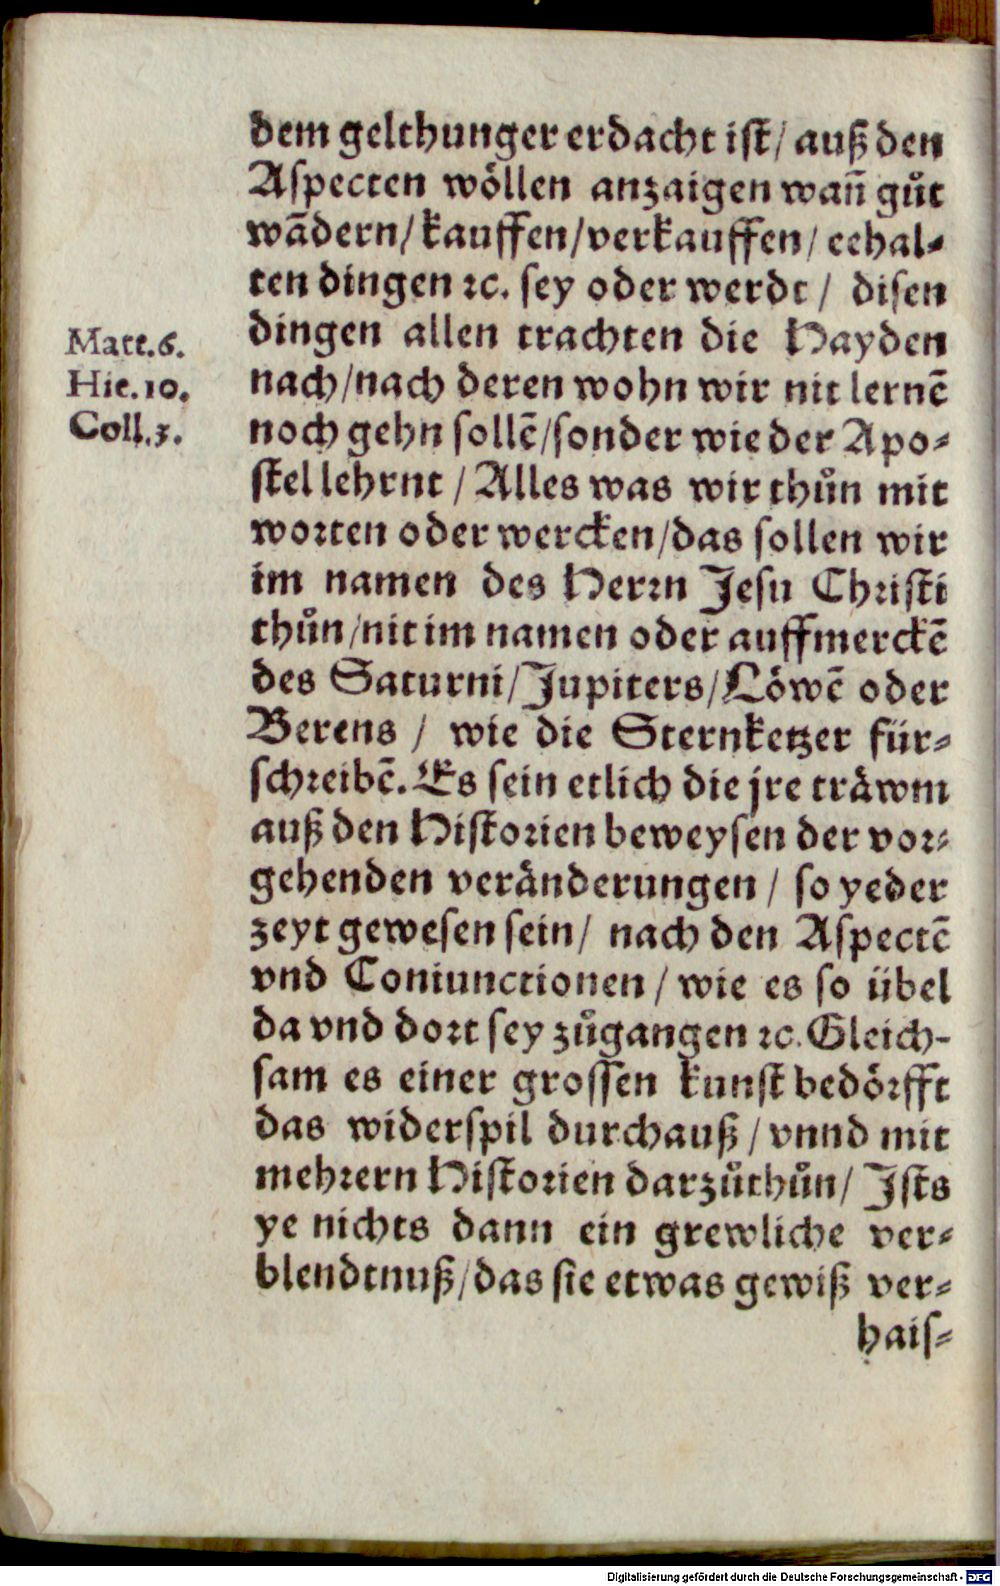 dem gelthunger erdacht ist/ auß den
Aspecten wöllen anzaigen wañ gůt
wãdern/ kauffen/ verkauffen/ eehal⸗
ten dingen ꝛc. sey oder werdt / disen
dingen allen trachten die Hayden
Matt.6.
Hie.10.
Coll.3.
nach/nach deren wohn wir nit lernẽ
noch gehn sollẽ/sonder wie der Apo⸗
stel lehrnt / Alles was wir thůn mit
worten oder wercken/das sollen wir
im namen des Herrn Jesu Christi
thůn/nit im namen oder auffmerckẽ
des Saturni/Jupiters/Löwẽ oder
Berens / wie die Sternketzer für⸗
schreibẽ. Es sein etlich die jre träwm
auß den Historien beweysen der vor⸗
gehenden veränderungen / so yeder
zeyt gewesen sein/ nach den Aspectẽ
vnd Coniunctionen / wie es so übel
da vnd dort sey zůgangen ꝛc. Gleich-
sam es einer grossen kunst bedörfft
das widerspil durchauß / vnnd mit
mehrern Historien darzůthůn/ Ists
ye nichts dann ein grewliche ver⸗
blendtnuß/das sie etwas gewiß ver⸗
hais⸗
Digitalisierung gefördert durch die Deutsche Forschungsgemeinschaft - DFG